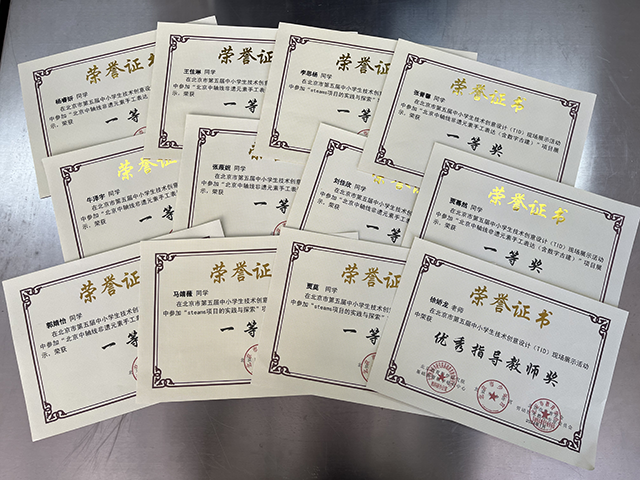 荣誉证
杨睿妍 同学
在北京市第五届中小学生技术创意
中参加"北京中轴线非遗元素手工表达
示，荣获
一等
荣誉证
王佳琳 同学
在北京市第五届中小学生技术创意
中参加"北京中轴线非遗元素手工表达
示，荣获
一等
荣誉证
李思杨 同学
在北京市第五届中小学生技术创意
中参加"steams项目的实践与探索"
一等
荣誉证书
张睿馨 同学
在北京市第五届中小学生技术创意设计（TID）现场展示活动
中参加"北京中轴线非遗元素手工表达（含数字古建）"项目展
示，荣获
一等奖
牛泽宇 同学
在北京市第五届中小学生技术创意
中参加"北京中轴线非遗元素手工表
示，荣获
一等
张雁妮 同学
在北京市第五届中小学生技术创
中参加"北京中轴线非遗元素手工
示，荣获
一等
刘佳欣 同学
在北京市第五届中小学生技术
中参加"北京中轴线非遗元素手
示，荣获
一等
荣誉证书
贾嘉然 同学
在北京市第五届中小学生技术创意设计（TID）现场展示活动
中参加"北京中轴线非遗元素手工表达（含数字古建）"项目展
示，荣获
一等奖
荣誉证
郭婧怡 同学
在北京市第五届中小学生技术创意
中参加"北京中轴线非遗元素手工
示，荣获
一等
荣誉证
马靖薇 同学
在北京市第五届中小学生技术创意
中参加"steams项目的实践与探索"
一等
荣誉证
贾莫 同学
在北京市第五届中小学生技术创意
中参加"steams项目的实践与探索"
一等
荣誉证书
徐娇龙 老师
在北京市第五届中小学生技术创意设计（TID）现场展示活动
中荣获
优秀指导教师奖